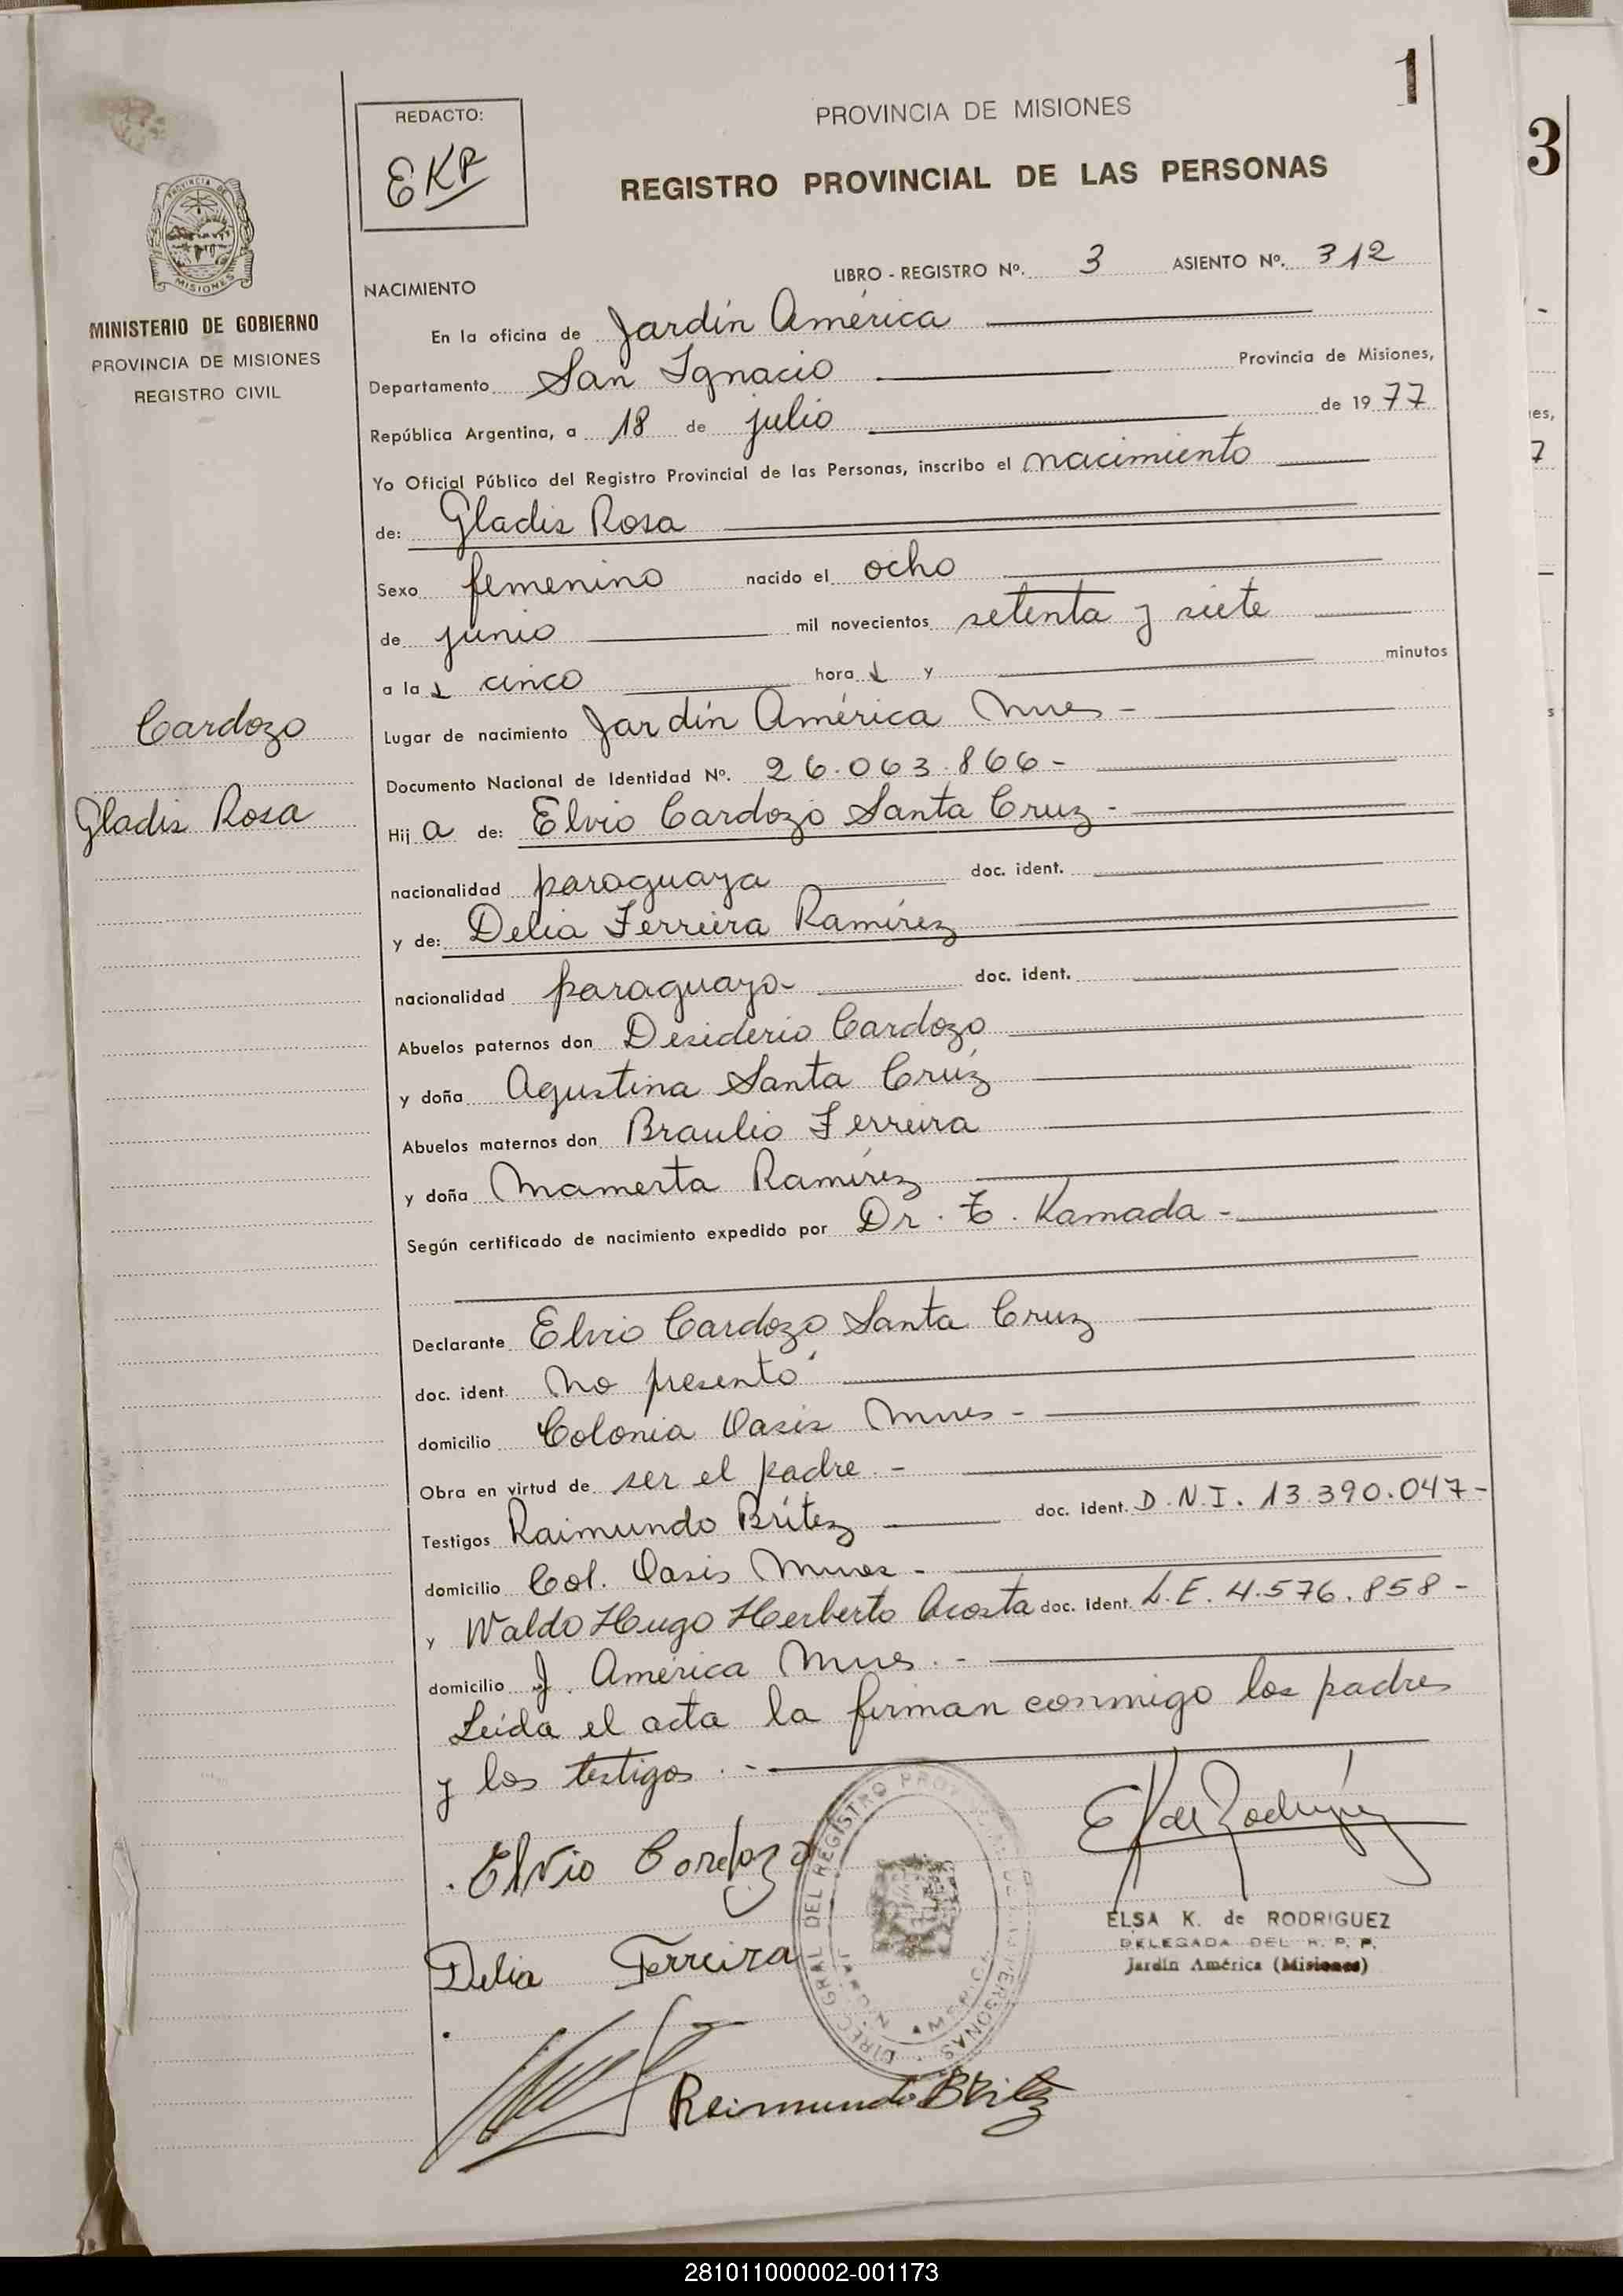 1
REDACTO:
EKR
PROVINCIA DE MISIONES
REGISTRO PROVINCIAL DE LAS PERSONAS
3
PROVINCIA DE
MISIONES
MINISTERIO DE GOBIERNO
PROVINCIA DE MISIONES
REGISTRO CIVIL
NACIMIENTO LIBRO - REGISTRO Nº. 3 ASIENTO Nº. 312
En la oficina de Jardín América
Departamento San Ignacio Provincia de Misiones,
República Argentina, a 18 de julio de 1977
Yo Oficial Público del Registro Provincial de las Personas, inscribo el nacimiento
de: Gladis Rosa
Sexo femenino nacido el ocho
de junio mil novecientos setenta y siete
a la s cinco hora s y minutos
Lugar de nacimiento Jardín América Mnes -
Documento Nacional de Identidad Nº. 26.063.866-
Cardozo
Gladis Rosa
Hij a de: Elvio Cardozo Santa Cruz -
nacionalidad paraguaya doc. ident.
y de: Delia Ferreira Ramírez
nacionalidad paraguaya- doc. ident.
Abuelos paternos don Desiderio Cardozo
y doña Agustina Santa Cruz
Abuelos maternos don Braulio Ferreira
y doña Mamerta Ramírez
Según certificado de nacimiento expedido por Dr. T. Kamada -
Declarante Elvio Cardozo Santa Cruz
doc. ident. No presentó
domicilio Colonia Oasis Mnes -
Obra en virtud de ser el padre. -
Testigos Raimundo Brítez doc. ident. D.N.I. 13.390.047-
domicilio Col. Oasis Mnes. -
y Waldo Hugo Herberto Acosta doc. ident. L.E. 4.576.858 -
domicilio J. América Mnes. -
Leída el acta la firman conmigo los padres
y los testigos. -
Elvio Cardozo
E K de Rodríguez
ELSA K. de RODRIGUEZ
DELEGADA DEL R. P. P.
Jardín América (Misiones)
Delia Ferreira
DIREC. GRAL DEL REGISTRO PROVINCIAL DE LAS PERSONAS
JARDIN AMERICA
Reimundo Britez
281011000002-001173